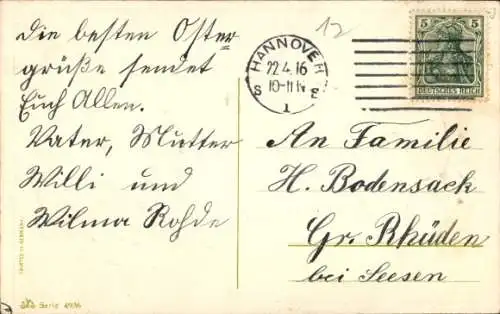 Die besten Oster-
grüße sendet
Euch Allen.
Vater, Mutter
Willi und
Wilma Rohde
12
HANNOVER
22.4.16
10-11 N
S 8
1
5 5
DEUTSCHES REICH
An Familie
H. Bodensack
Gr. Rhüden
bei Seesen
Serie 4936